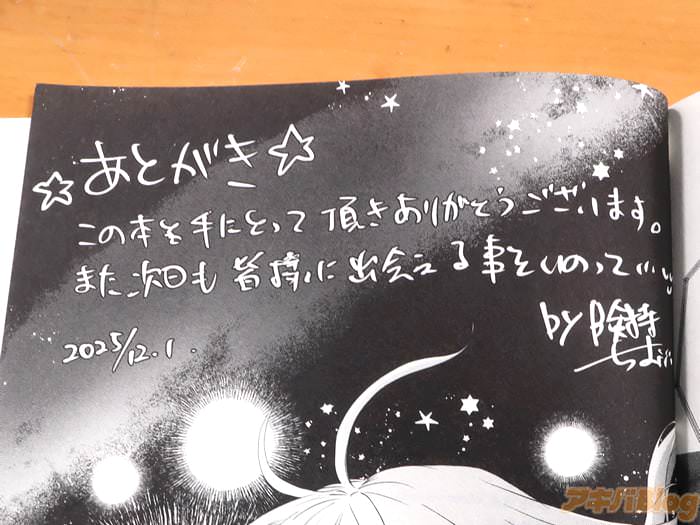 ☆あとがき☆
この本を手にとって頂きありがとうございます。
また次回も皆様に出会える事をいのって…
by
2025/12.1.
アキバBlog